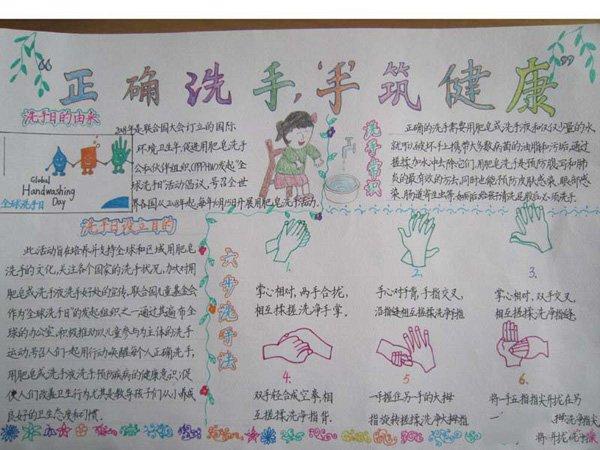 “正确洗手,‘手’筑健康”
洗手日的由来
Global
Handwashing
Day
全球洗手日
2008年是联合国大会订立的国际
环境卫生年,促进用肥皂洗手
公私伙伴组织(PPPHW)发起“全
球洗手日”活动倡议,号召全世
界各国从2008起,每年10月15日开展用肥皂洗手活动。
洗手常识
正确的洗手需要用肥皂或洗手液和仅仅少量的水
就可以破坏手上携带大多数病菌的油脂和污垢后,通过
搓揉加水冲去除它们,用肥皂洗手是预防腹泻和肺
炎的最有效的方法,同时也能预防皮肤感染、眼部感
染、肠道寄生虫等,如厕后、给孩子清洗屁股后必须洗手。
洗手日设立目的
此活动旨在培养并支持全球和区域用肥皂
洗手的文化,关注各个国家的洗手状况,加大对用
肥皂或洗手液洗手好处的宣传,联合国儿童基金会
作为“全球洗手日”的发起组织之一通过其遍布全
球的办公室,积极推动以儿童参与为主体的洗手
运动,号召人们一起用行动唤醒每个人正确洗手,
用肥皂或洗手液洗手预防疾病的健康意识,促
使人们改善卫生行为尤其是教导孩子们从小养成
良好的卫生态度和习惯。
六步洗手法
1.
掌心相对,两手合拢,
相互揉搓洗净手掌.
2.
手心对手背,手指交叉,
沿指缝相互搓揉洗净手指
3.
掌心相对,双手交叉,
相互搓揉洗净指缝.
4.
双手轻合成空拳相
互搓揉洗净指背.
5
一手握住另一手的大拇
指旋转搓揉洗净大拇指
6.
将一手五指指尖并拢在另
一